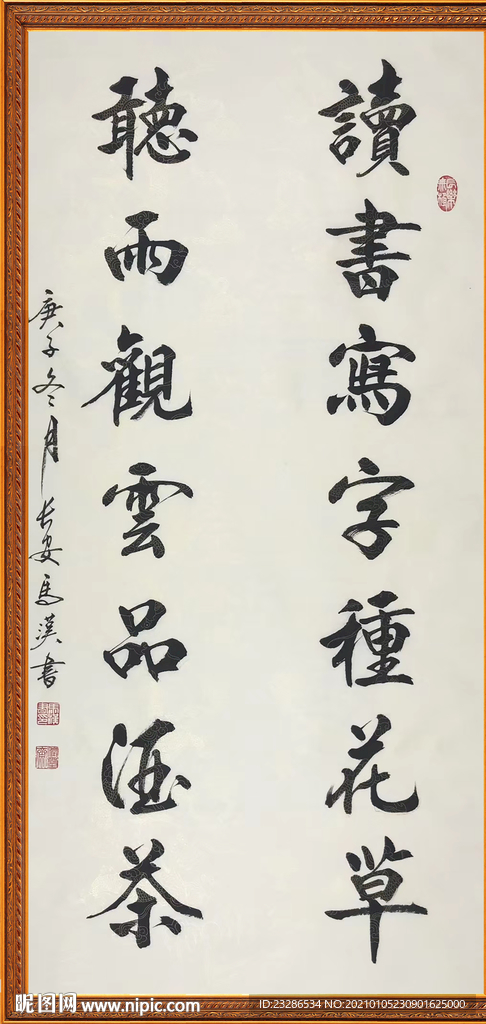 讀書寫字種花草
聽雨觀雲品酒茶
庚子冬月長安馬漢書
昵图网 www.nipic.com
ID:23286534 NO:20210105230901625000